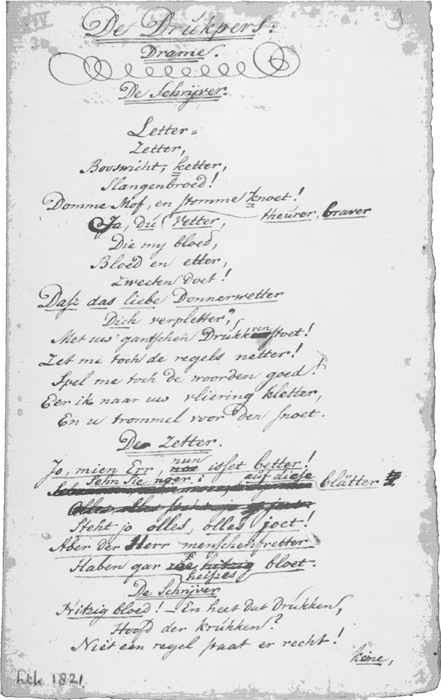 De Drukpers.
Drame.
De Schrijver.
Letter=
Zetter,
Booswicht, ketter,
Slangenbroed!
Domme Mof, en stomme knoet!
Ja, du Vetter, theurer, braver
Die my bloed,
Bloed en etter,
Zweeten doet!
Dasz das liebe Donnerwetter
Dich verpletter,
Met uw gantschen Drukkren stoet!
Zet me toch de regels netter!
Spel me toch de woorden goed!
Eer ik naar uw vliering kletter,
En u trommel voor den snoet.
De Zetter.
Jo, mien Err, nun isset better!
Sehn Sie nger: auf diese blätter
Steht jo olles, olles joet!
Aber der Herr menschenfretter
Haben gar heisses bloet.
De Schrijver
Hitzig bloed! En heet dat Drukken,
Hoofd der krukken?
Niet een regel staat er recht!
keine,
Ltk 1821